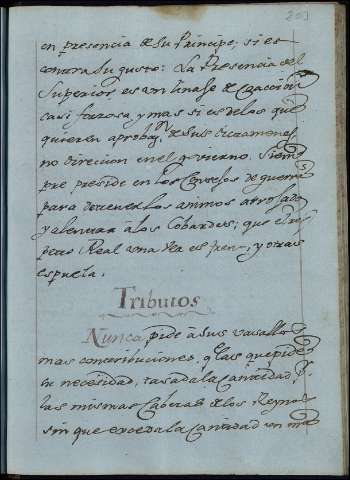 en presencia de su Principe; si es
contra su gusto: La Presencia del
Superior, es un linage de coaccion
casi forzosa, y mas si es de los que
quieren aprobazn. de sus dictamenes,
no direccion en el govierno. Siem
pre preside en los Consejos de guerra
para detener los animos arrojados
y alentar à los Cobardes; que el res
peto Real una vez es freno, y otras
espuela.
Tributos
Nunca pide à sus vasallos
mas contribuciones, q las que pide
la necesidad, tasada la Cantidad p.
las mismas Cabezas de los Reynos
sin que exceda la Cantidad en mas